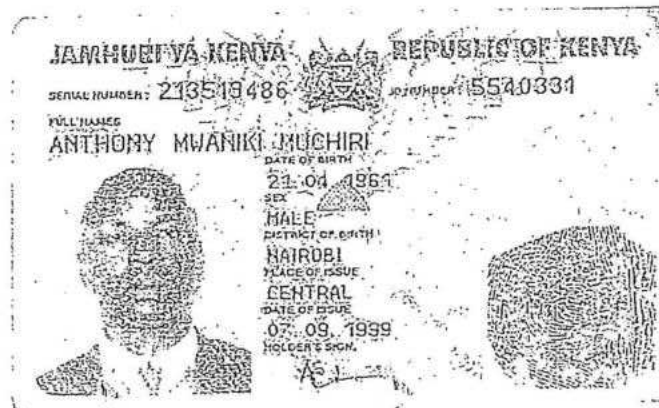 JAMHURI YA KENYA REPUBLIC OF KENYA
SERIAL NUMBER: 213519486 ID NUMBER: 5540331
FULL NAMES
ANTHONY MWANIKI MUCHIRI
DATE OF BIRTH
21.04.1961
SEX
MALE
DISTRICT OF BIRTH
NAIROBI
PLACE OF ISSUE
CENTRAL
DATE OF ISSUE
07.09.1999
HOLDER'S SIGN.